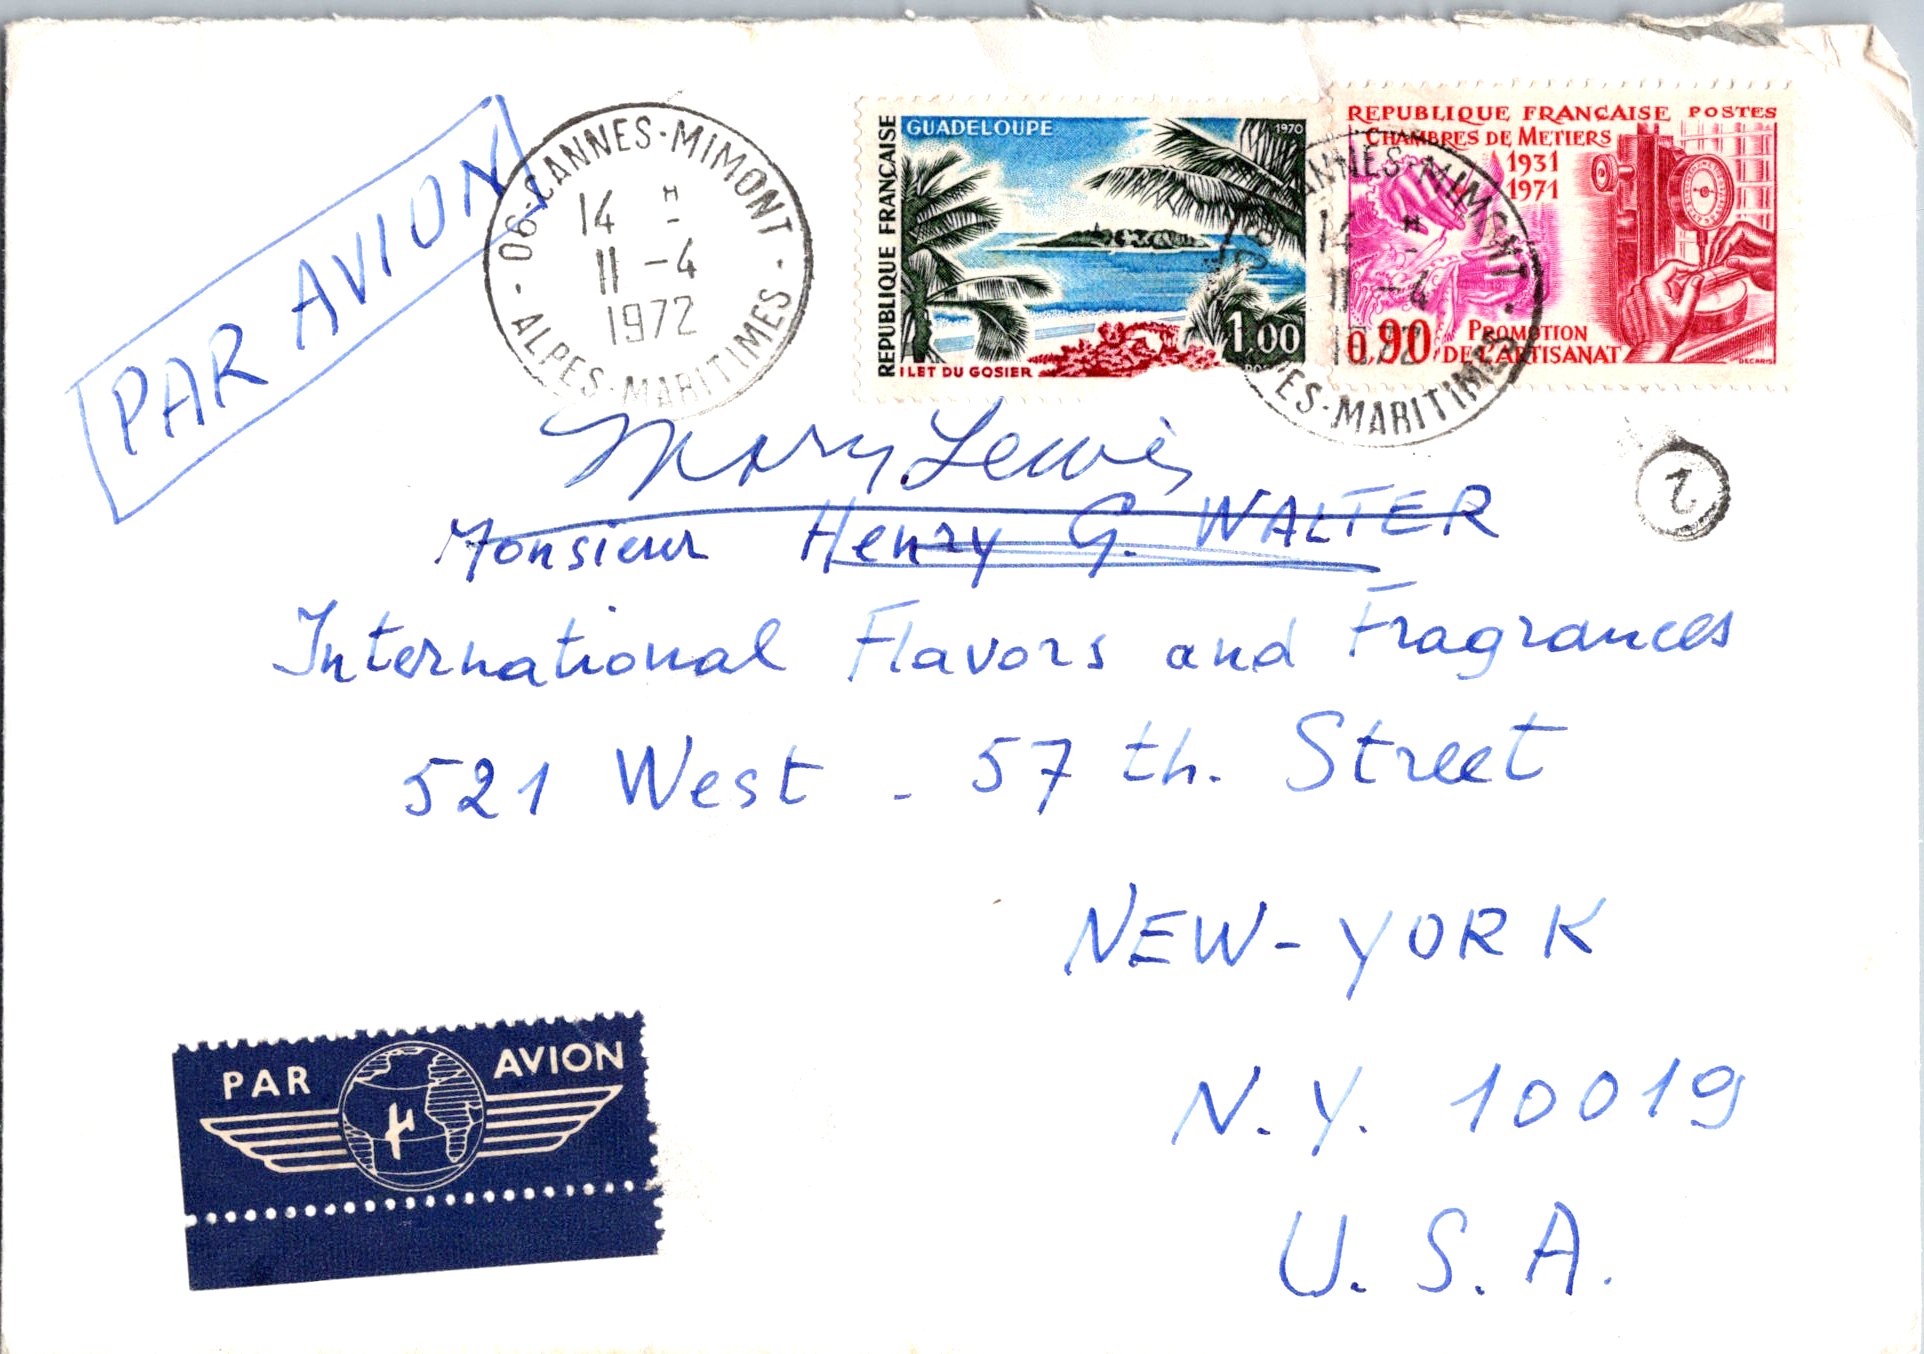 PAR AVION
06-CANNES-MIMONT
14 H
11 -4
1972
ALPES-MARITIMES
REPUBLIQUE FRANÇAISE
GUADELOUPE
1970
1,00
ILET DU GOSIER
REPUBLIQUE FRANÇAISE POSTES
CHAMBRES DE METIERS
1931
1971
0,90 PROMOTION
DE L'ARTISANAT
DECARIS
ANNES-MIMONT
14 H
11 -4
1972
PES-MARITIMES
Mary Lewis
Monsieur Henry G. WALTER
International Flavors and Fragrances
521 West - 57 th. Street
NEW-YORK
N.Y. 10019
U.S.A.
PAR AVION